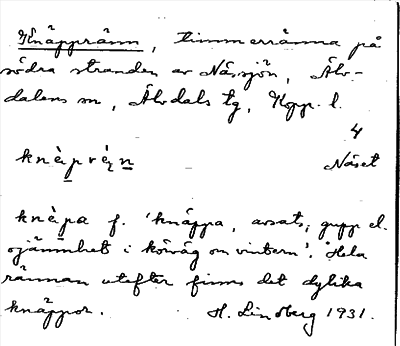 Knäppränn, timmerränna på
södra stranden av Nässjön, Älv-
dalens sn, Älvdals tg, Kopp. l.
4
knὲpręn Näset
knὲpa f. 'knäppa, avsats, gupp el.
ojämnhet i körväg om vintern'. Hela
rännan utefter finns det dylika
knäppor. H. Lindberg 1931.